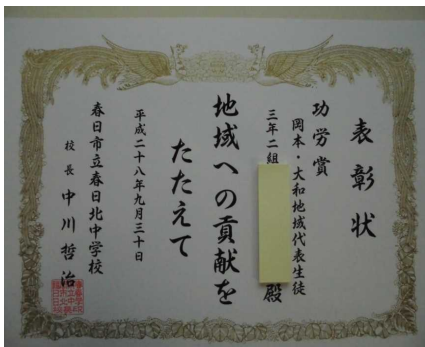 表彰状
功労賞
岡本・大和地域代表生徒
三年二組 殿
地域への貢献を
たたえて
平成二十八年九月三十日
春日市立春日北中学校
校長 中川哲治